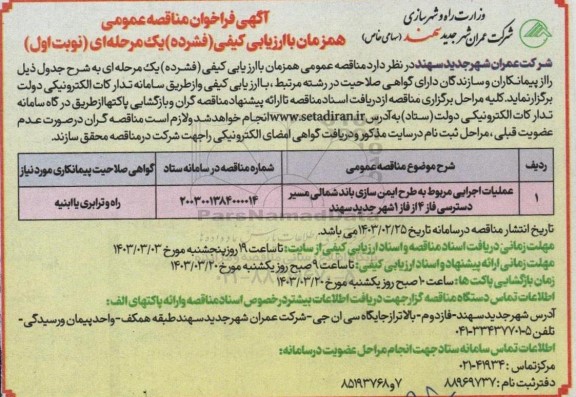 وزارت راه و شهرسازی
شرکت عمران شهر جدید سهند (سهامی خاص)
آگهی فراخوان مناقصه عمومی
همزمان با ارزیابی کیفی (فشرده) یک مرحله‌ای (نوبت اول)
شرکت عمران شهر جدید سهند در نظر دارد مناقصه عمومی همزمان با ارزیابی کیفی (فشرده) یک مرحله‌ای به شرح جدول ذیل
را از پیمانکاران و سازندگان دارای گواهی صلاحیت در رشته مرتبط، با ارزیابی کیفی و از طریق سامانه تدارکات الکترونیکی دولت
برگزار نماید. کلیه مراحل برگزاری مناقصه از دریافت اسناد مناقصه تا ارائه پیشنهاد مناقصه گران و بازگشایی پاکتها از طریق درگاه سامانه
تدارکات الکترونیکی دولت (ستاد) به آدرس www.setadiran.ir انجام خواهد شد و لازم است مناقصه گران در صورت عدم
عضویت قبلی، مراحل ثبت نام در سایت مذکور و دریافت گواهی امضای الکترونیکی را جهت شرکت در مناقصه محقق سازند.
ردیف شرح موضوع مناقصه عمومی شماره مناقصه در سامانه ستاد گواهی صلاحیت پیمانکاری مورد نیاز
۱ عملیات اجرایی مربوط به طرح ایمن سازی باند شمالی مسیر دسترسی فاز ۴ از فاز ۱ شهر جدید سهند ۲۰۰۳۰۰۱۳۸۴۰۰۰۰۱۴ راه و ترابری یا ابنیه
تاریخ انتشار مناقصه در سامانه تاریخ ۱۴۰۳/۰۲/۲۵ می باشد.
مهلت زمانی دریافت اسناد مناقصه و اسناد ارزیابی کیفی از سایت: تا ساعت ۱۹ روز پنجشنبه مورخ ۱۴۰۳/۰۳/۰۳
مهلت زمانی ارائه پیشنهاد و اسناد ارزیابی کیفی: تا ساعت ۹ صبح روز یکشنبه مورخ ۱۴۰۳/۰۳/۲۰
زمان بازگشایی پاکت ها: ساعت ۱۰ صبح روز یکشنبه مورخ ۱۴۰۳/۰۳/۲۰
اطلاعات تماس دستگاه مناقصه گزار جهت دریافت اطلاعات بیشتر در خصوص اسناد مناقصه و ارائه پاکتهای الف:
آدرس شهر جدید سهند - فاز دوم - بالاتر از جایگاه سی ان جی - شرکت عمران شهر جدید سهند طبقه همکف - واحد پیمان و رسیدگی -
تلفن ۵-۰۴۱-۳۳۴۳۷۷۰۱
اطلاعات تماس سامانه ستاد جهت انجام مراحل عضویت در سامانه:
مرکز تماس: ۰۲۱-۴۱۹۳۴
دفتر ثبت نام: ۸۸۹۶۹۷۳۷ ۷ و ۸۵۱۹۳۷۶۸
ParsNamadData